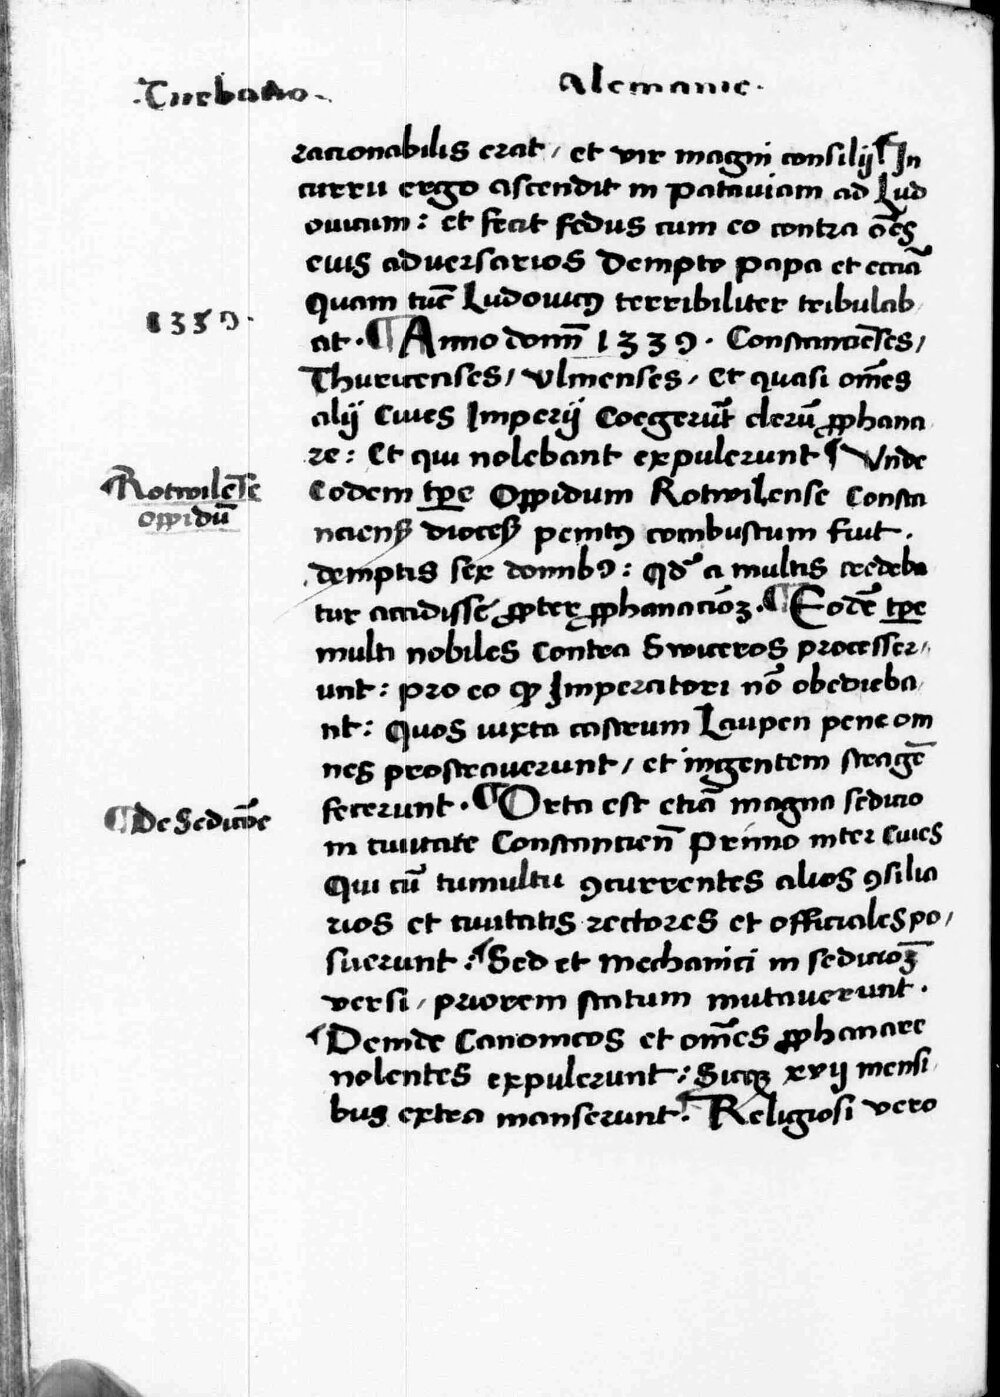 ·Turbatio·
Alemanie·
racionabilis erat / et vir magni consilij ¶ In
curru ergo ascendit in pataviam ad Lud
ovicum : et fecit fedus cum eo contra oēs
eius adversarios dempto papa et ecciā
Quam tūc Ludovicꝰ terribiliter tribulab
1339·
at · ¶ Anno domī 1339 · Constancieses /
Thuricenses / Ulmenses / Et quasi om̄es
alij Cives Imperij Coegerūt clerū ꝓphana
re : Et qui nolebant expulerunt ¶ Vnde
¶ Rotwilēse
oppidū
Eodem tp̄e Oppidum Rotwilense Consta
nciensꝭ diocesꝭ penitꝰ combustum fuit ·
demptis sex domibꝰ : Qd̄ a multis credeba
tur accidisse ꝓpter ꝓphanacōeꝫ · ¶ Eodē tp̄e
multi nobiles Contra Swiceros processer /
unt : pro eo ꝙ Imperatori nō obedieba
nt : Quos iuxta castrum Laupen pene om
nes prostraverunt / et ingentem stragē
fecerunt · ¶ Orta est etiā magna sedicio
¶ De Sedicōe
in civitate Constancień Primo inter Cives
Qui cū tumultu ꝯcurrentes alios ꝯsilia
rios et civitatis rectores et officiales po /
suerunt : ¶ Sed et mechanici in sedicōeꝫ
versi / priorem statum mutaverunt ·
¶ Deinde Canonicos et om̄es ꝓphanare
nolentes expulerunt : Sicqꝫ xvij mensi
bus extra manserunt · ¶ Religiosi vero